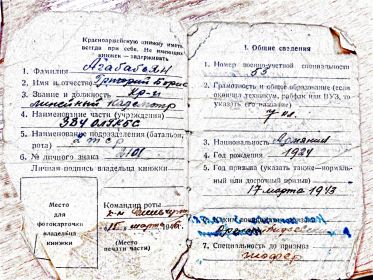 Красноармейскую книжку иметь
всегда при себе. Не имеющих
книжек — задерживать
1. Фамилия Агабабьян
2. Имя и отчество Григорий Борис
3. Звание и должность кр-ц
линейный надсмотр
4. Наименование части (учреждения)
5. Наименование подразделения (батальон,
рота)
6. № личного знака
Личная подпись владельца книжки
Место
для
фотокарточки
владельца
книжки
Командир роты
марта
(Место
печати части)
I. Общие сведения
1. Номер военно-учетной специальности
53
2. Грамотность и общее образование (если
окончил техникум, рабфак или ВУЗ, то
указать его название)
7 кл.
3. Национальность Армянин
4. Год рождения 1924
5. Год призыва (указать также—нормаль-
ный или досрочный призыв)
17 марта 1943
7. Специальность до призыва
шофер